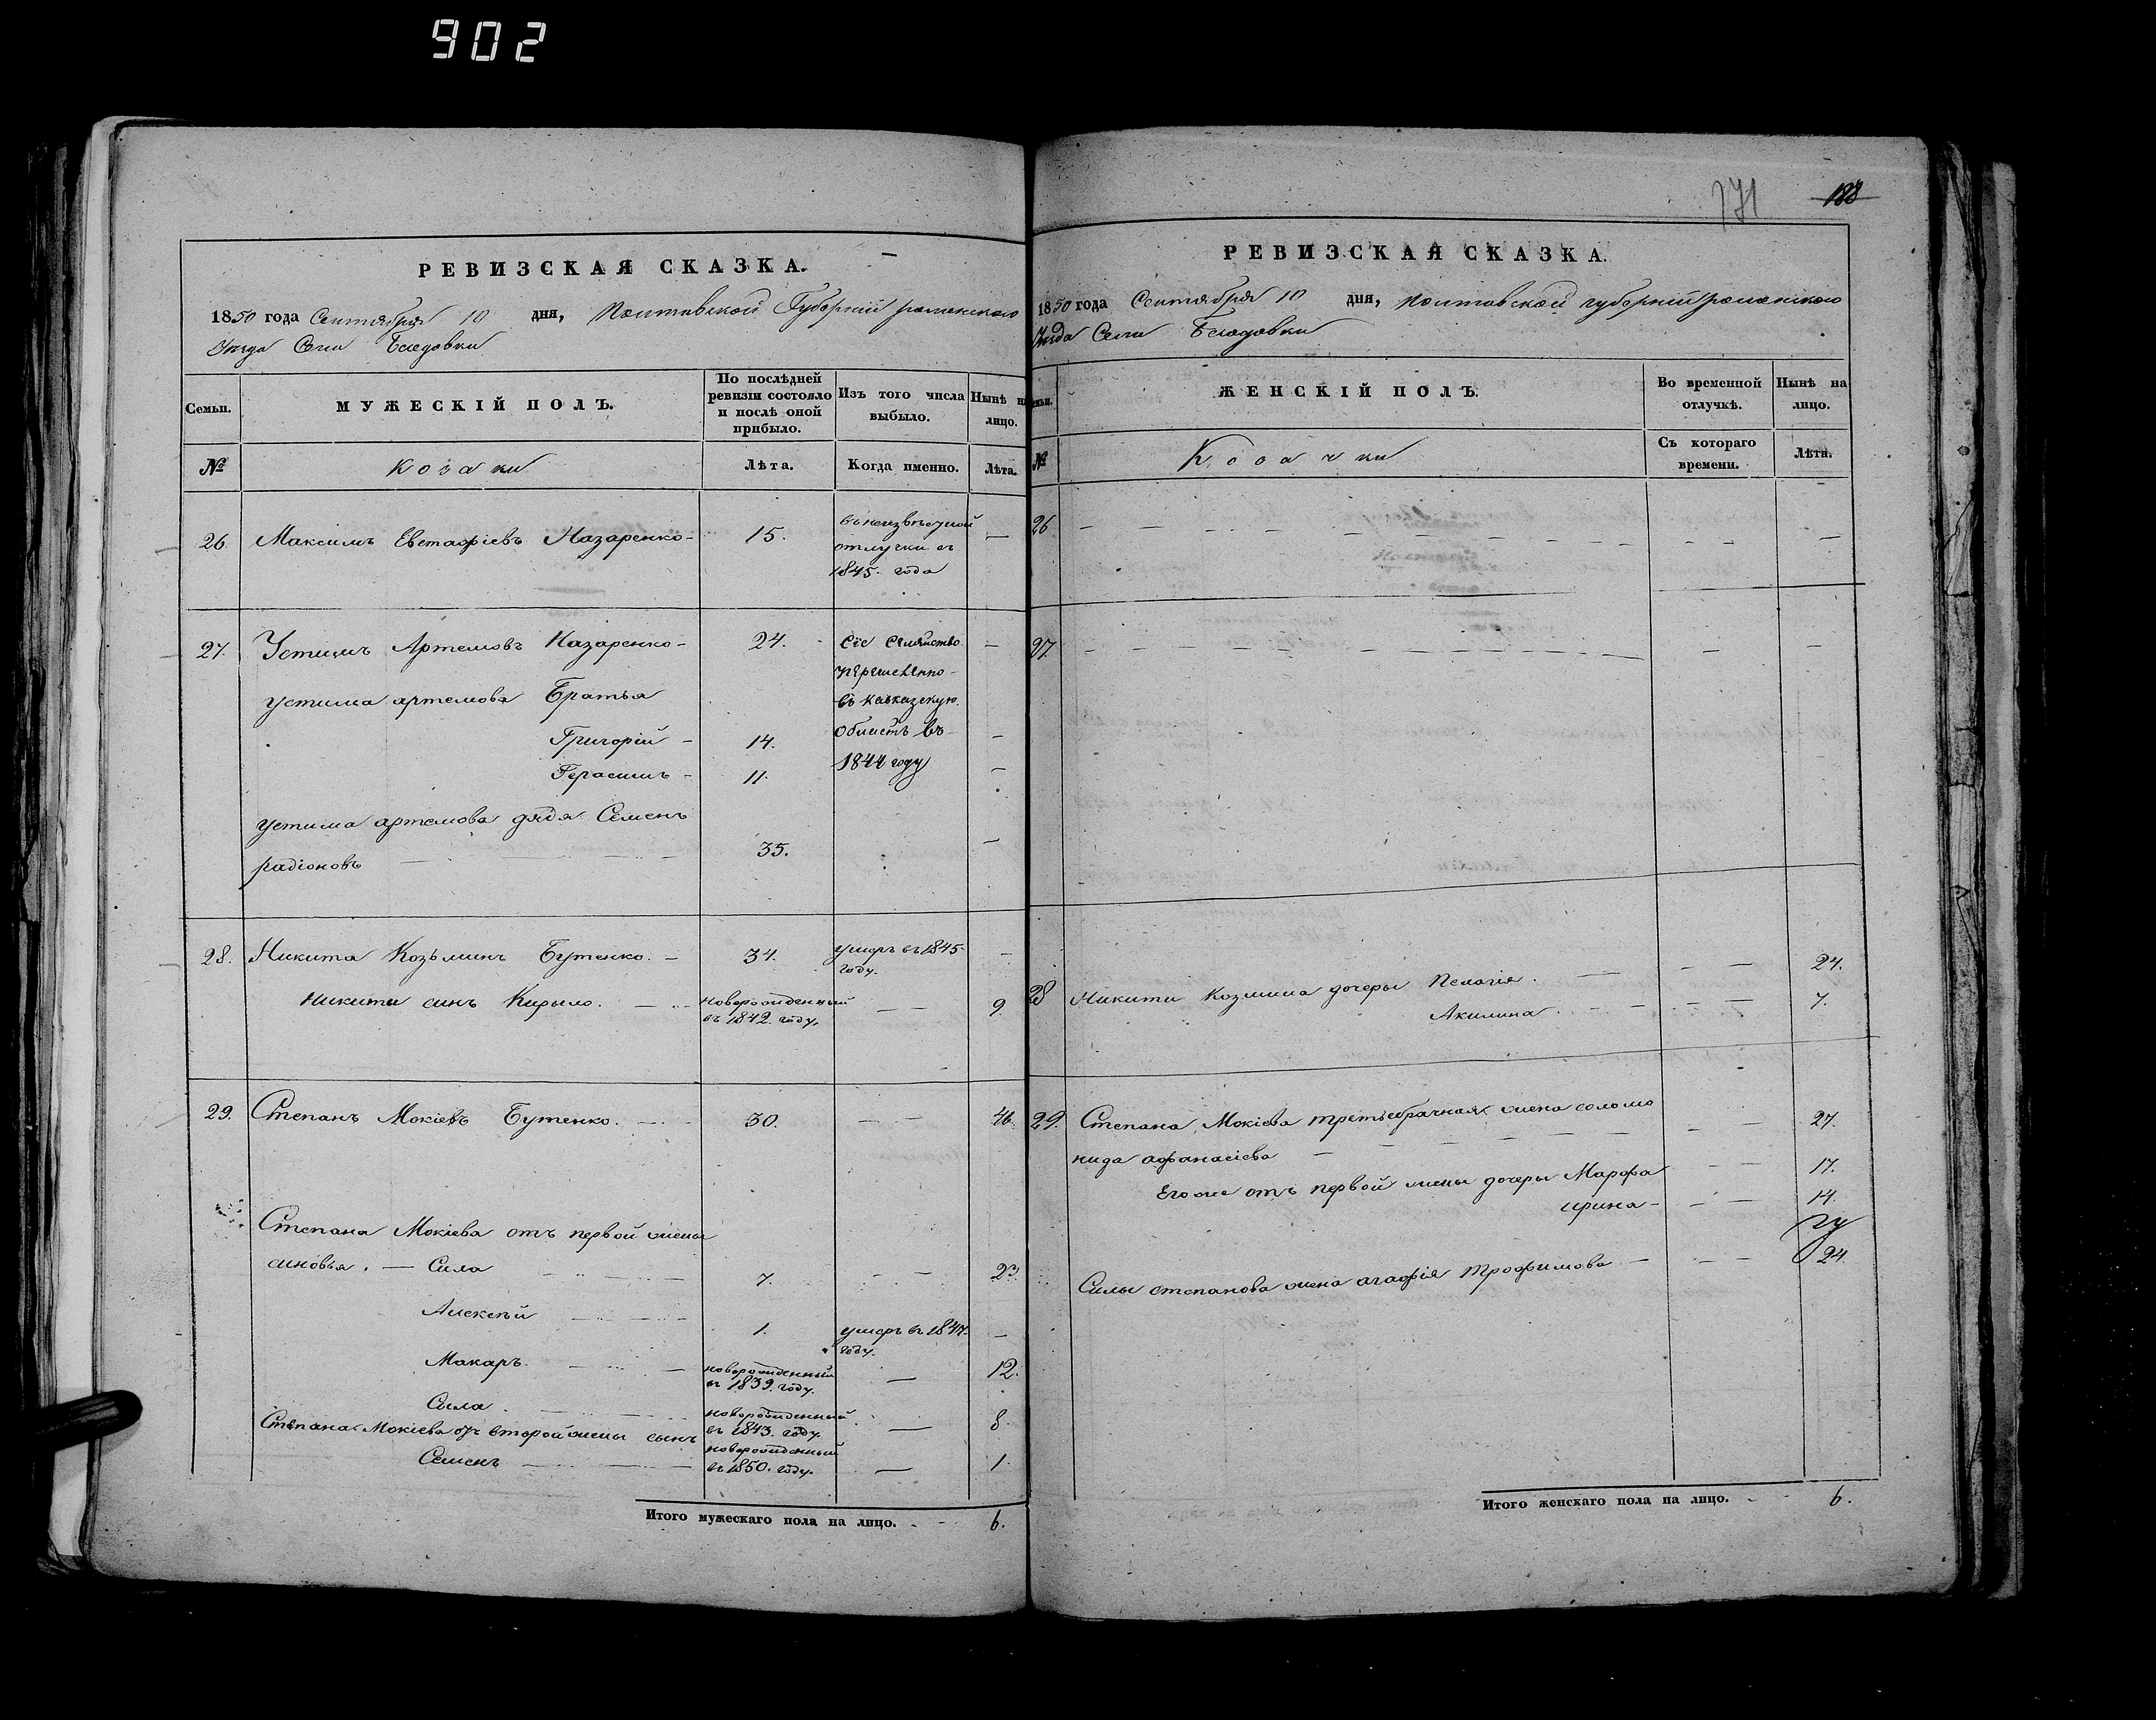 902
171 188
РЕВИЗСКАЯ СКАЗКА.
1850 года Сентября 10 дня, Полтавской Губерніи роменского
Уезда Села Беседовки
Семьи. МУЖЕСКІЙ ПОЛЪ. По послѣдней ревизіи состояло и послѣ оной прибыло. Изъ того числа выбыло. Нынѣ на лицо.
№ Козаки Лѣта. Когда именно. Лѣта.
26. Максимъ Евстафіевъ Назаренко - 15. въ неизвѣстной —
отлучки съ
1845. года
27. Устимъ Артемовъ Назаренко - 24. Сіе семѣйство —
перешевенно
устима артемова Братья въ кавказскую
Григорій - 14. область въ —
Герасимъ - 11. 1844 году —
устима артемова дядя Семенъ
радіоновъ — 35. —
28. Никита Козьминъ Бутенко. — 34. умеръ въ 1845 —
году.
Никиты синъ Кирыло. — новорожденный — — 9.
въ 1842. году.
29. Степанъ Мокіевъ Бутенко. — 30. — — 46.
Степана Мокіева отъ первой жены
синовья. — Сила 7. — — 23
Алексѣй 1. умеръ въ 1847. —
году.
Макаръ. новорожденный — 12.
въ 1839. году.
Сила. новорожденный — 8.
въ 1843. году.
Степана Мокіева отъ второй жены сынъ новорожденный
Семенъ въ 1850. году. — 1.
Итого мужескаго пола на лицо. 6.
РЕВИЗСКАЯ СКАЗКА.
1850 года Сентября 10 дня, Полтавской губерніи роменского
Уезда Села Беседовки
Семьи. ЖЕНСКІЙ ПОЛЪ. Во временной отлучкѣ. Нынѣ на лицо.
№ Козачки Съ котораго времени. Лѣта.
26 — — — —
27. — — — —
28 Никиты Козмина дочеры Пелагія. — — 24.
Акилина. — — 7.
29. Степана Мокіева третьебрачная жена соломо — — 27.
нида афанасіева —
Его же отъ первой жены дочеры Марфа — — 17.
ирина — — — 14.
Силы степанова жена агафія трофимова — — — 24.
Итого женскаго пола на лицо. 6.